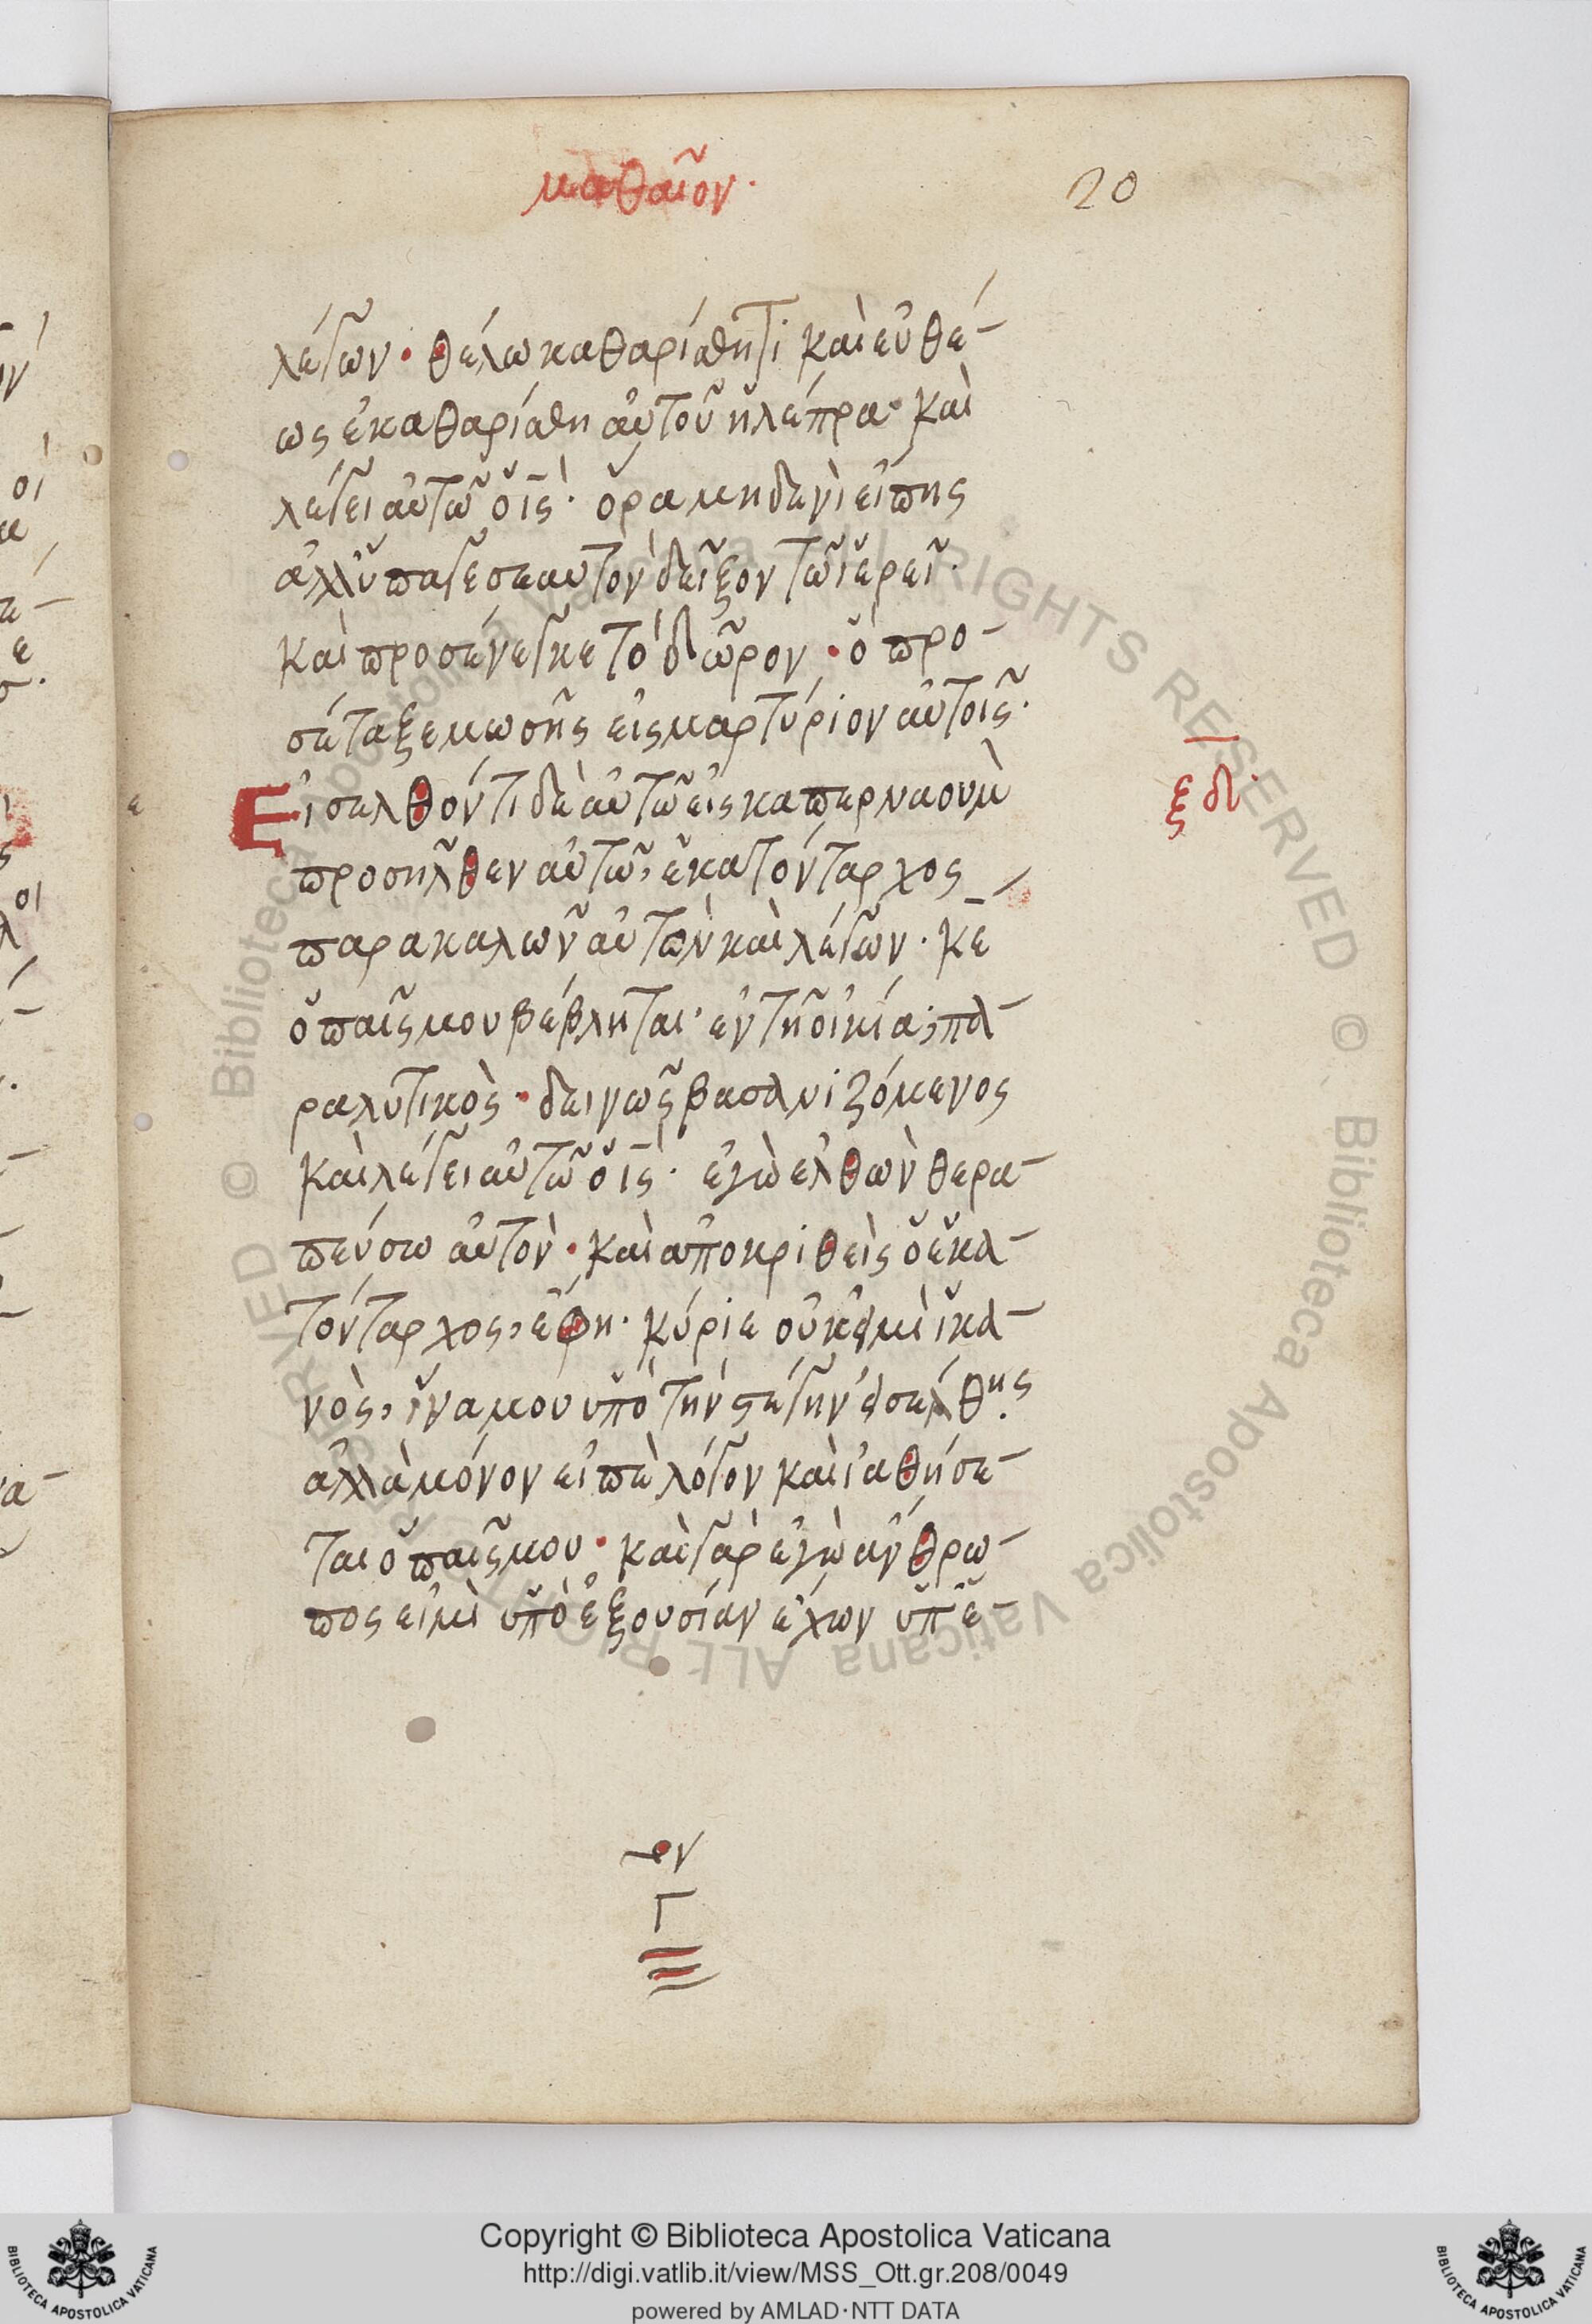 μαθαῖον·
20
λέγων· θέλω καθαρίσθητι καὶ εὐθέ-
ως ἐκαθαρίσθη αὐτοῦ ἡ λέπρα· καὶ
λέγει αὐτῶ ὁ ι̅ς̅· ὅρα μηδενὶ εἴπης
ἀλλ' ὕπαγε σεαυτὸν δεῖξον τῶ ἱερεῖ·
καὶ προσένεγκε τὸ δῶρον· ὃ προ-
σέταξε μωσῆς εἰς μαρτύριον αὐτοῖς·
Εἰσελθόντι δὲ αὐτῶ εἰς καπερναοὺμ
ξδ
προσῆλθεν αὐτῶ, ἑκατόνταρχος
παρακαλῶν αὐτὸν καὶ λέγων· κ̅ε̅
ὁ παῖς μου βέβληται· ἐν τῆ οἰκία, πα-
ραλυτικὸς· δεινῶς βασανιζόμενος
καὶ λέγει αὐτῶ ὁ ι̅ς̅· ἐγὼ ἐλθὼν θερα-
πεύσω αὐτὸν· καὶ ἀποκριθεὶς ὁ ἑκα-
τόνταρχος, ἔφη· κύριε οὐκ εἰμὶ ἱκα-
νὸς, ἵνα μου ὑπὸ τὴν στέγην εἰσέλθης·
ἀλλὰ μόνον εἰπὲ λόγον καὶ ἰαθήσε-
ται ὁ παῖς μου· καὶ γὰρ ἐγὼ ἄνθρω-
πος εἰμὶ ὑπὸ ἐξουσίαν ἔχων ὑπ' ἐ-
Γ
Copyright © Biblioteca Apostolica Vaticana
http://digi.vatlib.it/view/MSS_Ott.gr.208/0049
powered by AMLAD·NTT DATA
BIBLIOTECA APOSTOLICA VATICANA
BIBLIOTECA APOSTOLICA VATICANA